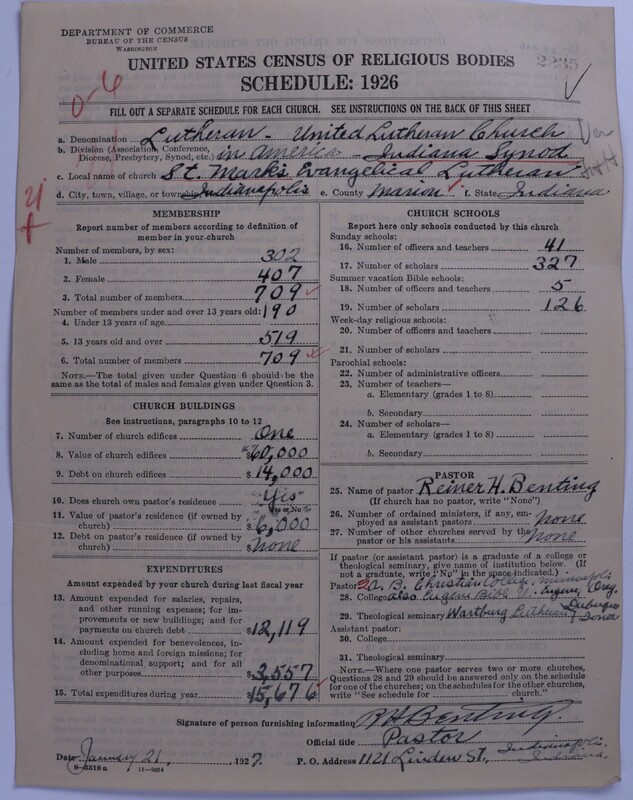 DEPARTMENT OF COMMERCE
BUREAU OF THE CENSUS
WASHINGTON
UNITED STATES CENSUS OF RELIGIOUS BODIES
2235
SCHEDULE: 1926
0-6
FILL OUT A SEPARATE SCHEDULE FOR EACH CHURCH. SEE INSTRUCTIONS ON THE BACK OF THIS SHEET
a. Denomination Lutheran - United Lutheran Church
b. Division (Association, Conference, Diocese, Presbytery, Synod, etc.) in America - Indiana Synod
c. Local name of church St. Mark's Evangelical Lutheran
d. City, town, village, or township Indianapolis e. County Marion f. State Indiana
21
MEMBERSHIP
Report number of members according to definition of
member in your church
Number of members, by sex:
1. Male 302
2. Female 407
3. Total number of members 709
Number of members under and over 13 years old:
4. Under 13 years of age 190
5. 13 years old and over 519
6. Total number of members 709
NOTE.—The total given under Question 6 should be the
same as the total of males and females given under Question 3.
CHURCH BUILDINGS
See instructions, paragraphs 10 to 12
7. Number of church edifices One
8. Value of church edifices $60,000
9. Debt on church edifices $14,000
10. Does church own pastor's residence Yes
Yes or No
11. Value of pastor's residence (if owned by
church) $6,000
12. Debt on pastor's residence (if owned by
church) $None
EXPENDITURES
Amount expended by your church during last fiscal year
13. Amount expended for salaries, repairs,
and other running expenses; for im-
provements or new buildings; and for
payments on church debt $12,119
14. Amount expended for benevolences, in-
cluding home and foreign missions; for
denominational support; and for all
other purposes $3,557
15. Total expenditures during year $15,676
CHURCH SCHOOLS
Report here only schools conducted by this church
Sunday schools:
16. Number of officers and teachers 41
17. Number of scholars 327
Summer vacation Bible schools:
18. Number of officers and teachers 5
19. Number of scholars 126
Week-day religious schools:
20. Number of officers and teachers
21. Number of scholars
Parochial schools:
22. Number of administrative officers
23. Number of teachers—
a. Elementary (grades 1 to 8)
b. Secondary
24. Number of scholars—
a. Elementary (grades 1 to 8)
b. Secondary
PASTOR
25. Name of pastor Reiner H. Benting
(If church has no pastor, write "None")
26. Number of ordained ministers, if any, em-
ployed as assistant pastors None
27. Number of other churches served by the
pastor or his assistants None
If pastor (or assistant pastor) is a graduate of a college or
theological seminary, give name of institution below. (If
not a graduate, write "No" in the space indicated.)
Pastor: A. B. Christian College, Minneapolis
28. College also Eugene Bible U. Eugene, Oreg.
29. Theological seminary Wartburg Lutheran, Dubuque Iowa
Assistant pastor:
30. College
31. Theological seminary
NOTE.—Where one pastor serves two or more churches,
Questions 28 and 29 should be answered only on the schedule
for one of the churches; on the schedules for the other churches,
write "See schedule for church."
Signature of person furnishing information R H Benting.
Official title Pastor
Date January 21, 1927. P. O. Address 1121 Linden St., Indianapolis. Indiana.
8-3518a 11-9054